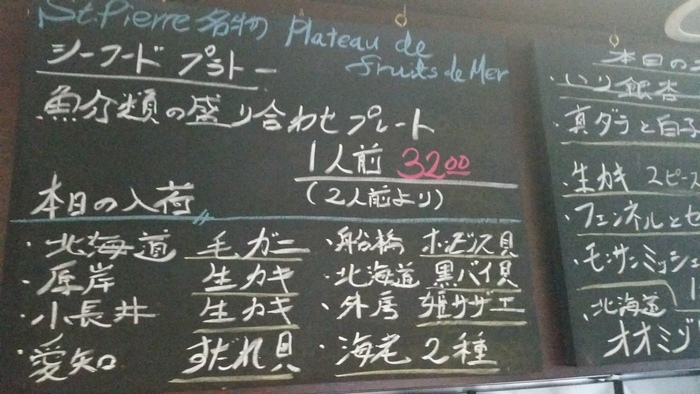 St.Pierre 名物 Plateau de
fruits de Mer
シーフード プラトー
魚介類の盛り合わせプレート
1人前 3200
(2人前より)
本日の入荷
・北海道 毛ガニ
・厚岸 生カキ
・小長井 生カキ
・愛知 すだれ貝
・船橋 ホンビノス貝
・北海道 黒バイ貝
・外房 姫サザエ
・海老 2種
本日の
・いり銀杏
・真ダラと白子
・生カキ スピー
・フェンネルと
・モンサンミッシェ
・北海道
オオミゾ